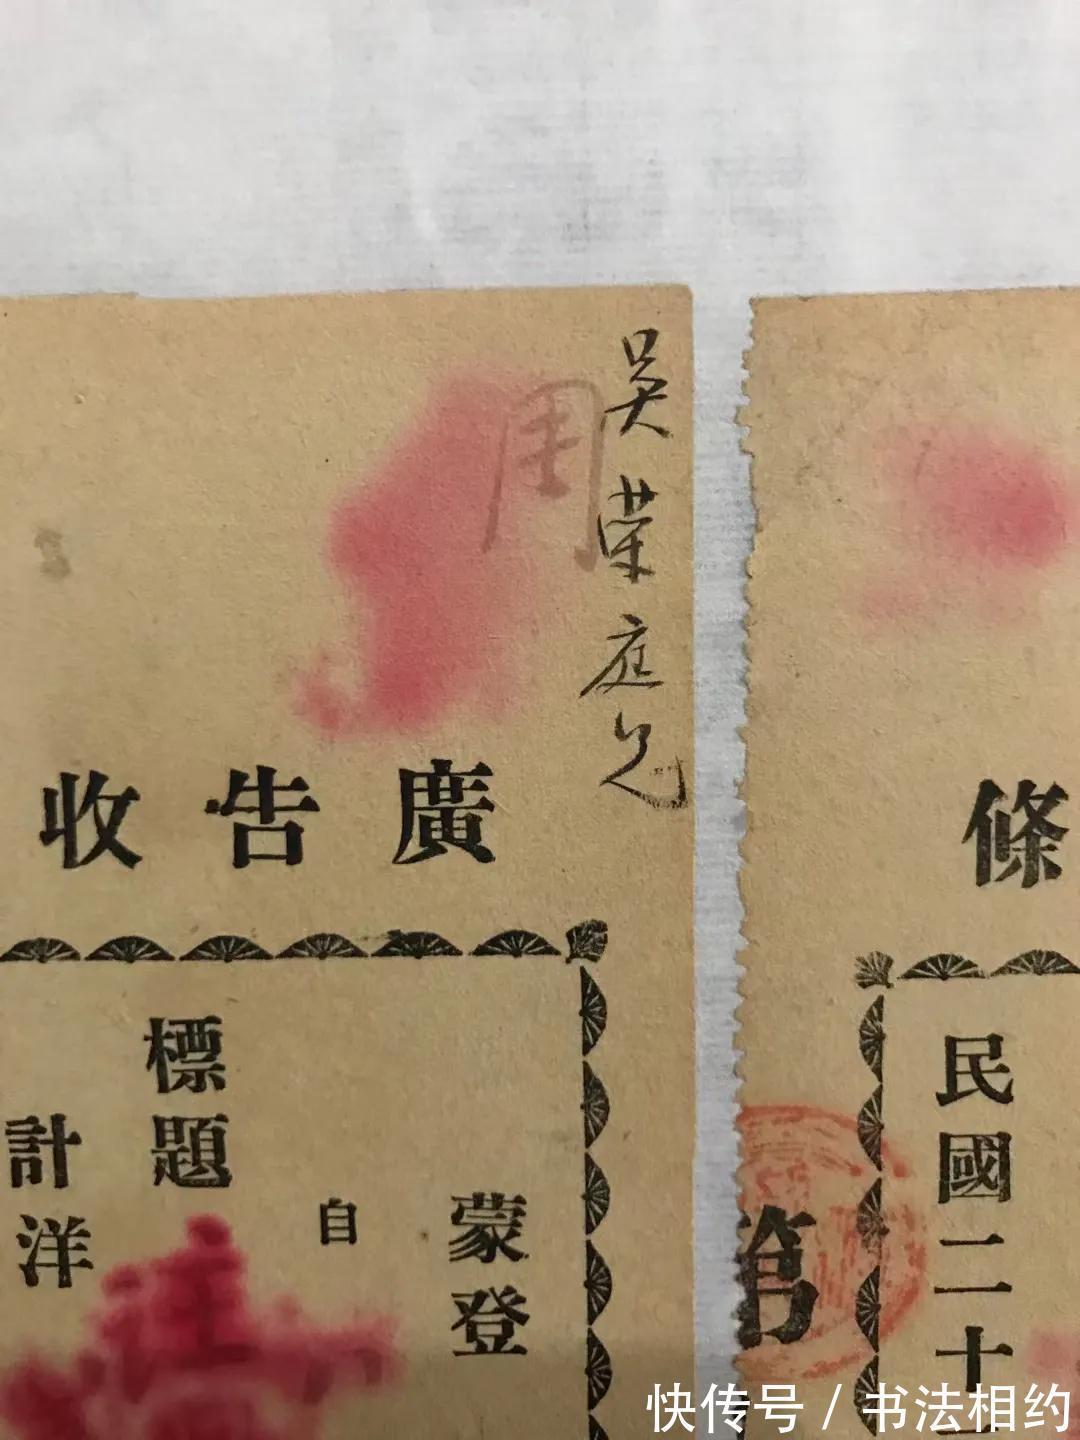 吴荣庭兄
周
廣告收
條
蒙登
自
標題
計洋
民國二十二
第
快传号 / 书法相约